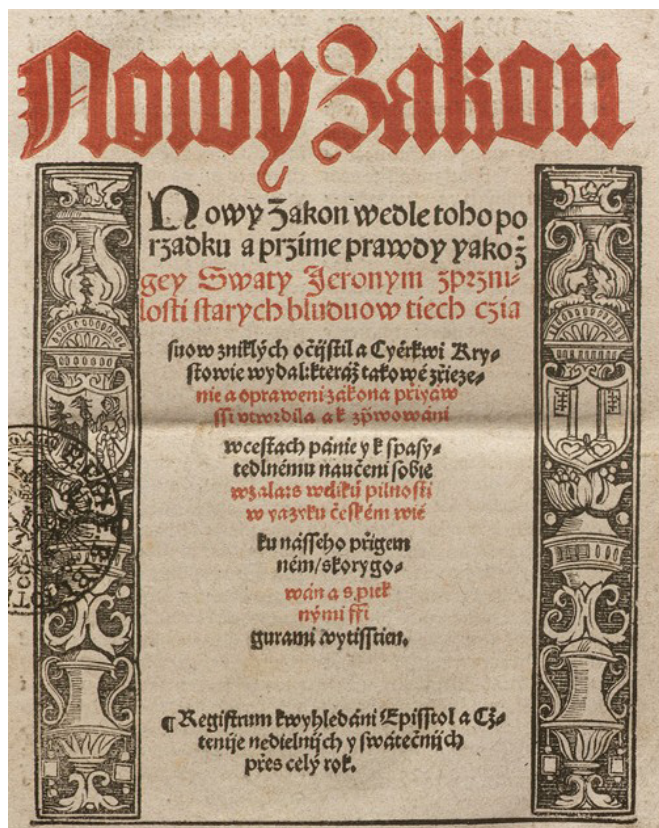 Nowy Zakon
Nowy Zakon wedle toho po
rzadku a przime prawdy yakož
gey Swaty Jeronym zprzni⸗
losti starych bluduow tiech czia
suow zniklých očijstil a Cyérkwi Kry⸗
stowie wydal: kteráž takowé zřieze⸗
nie a opraweni zákona přiyaw
ssi vtwrdila a k
w cestach pánie y k spasy⸗
tedlnému naučeni sobie
welikú pilnosti
w yazyku českém wie
ku násseho přigem
ném / skorygo⸗
wán a s piek
nými ffi
gurami wytisstien.
¶ Registrum k wyhledáni Episstol a Cž⸗
tenije nedielnijch y swátečnijch
přes celý rok.